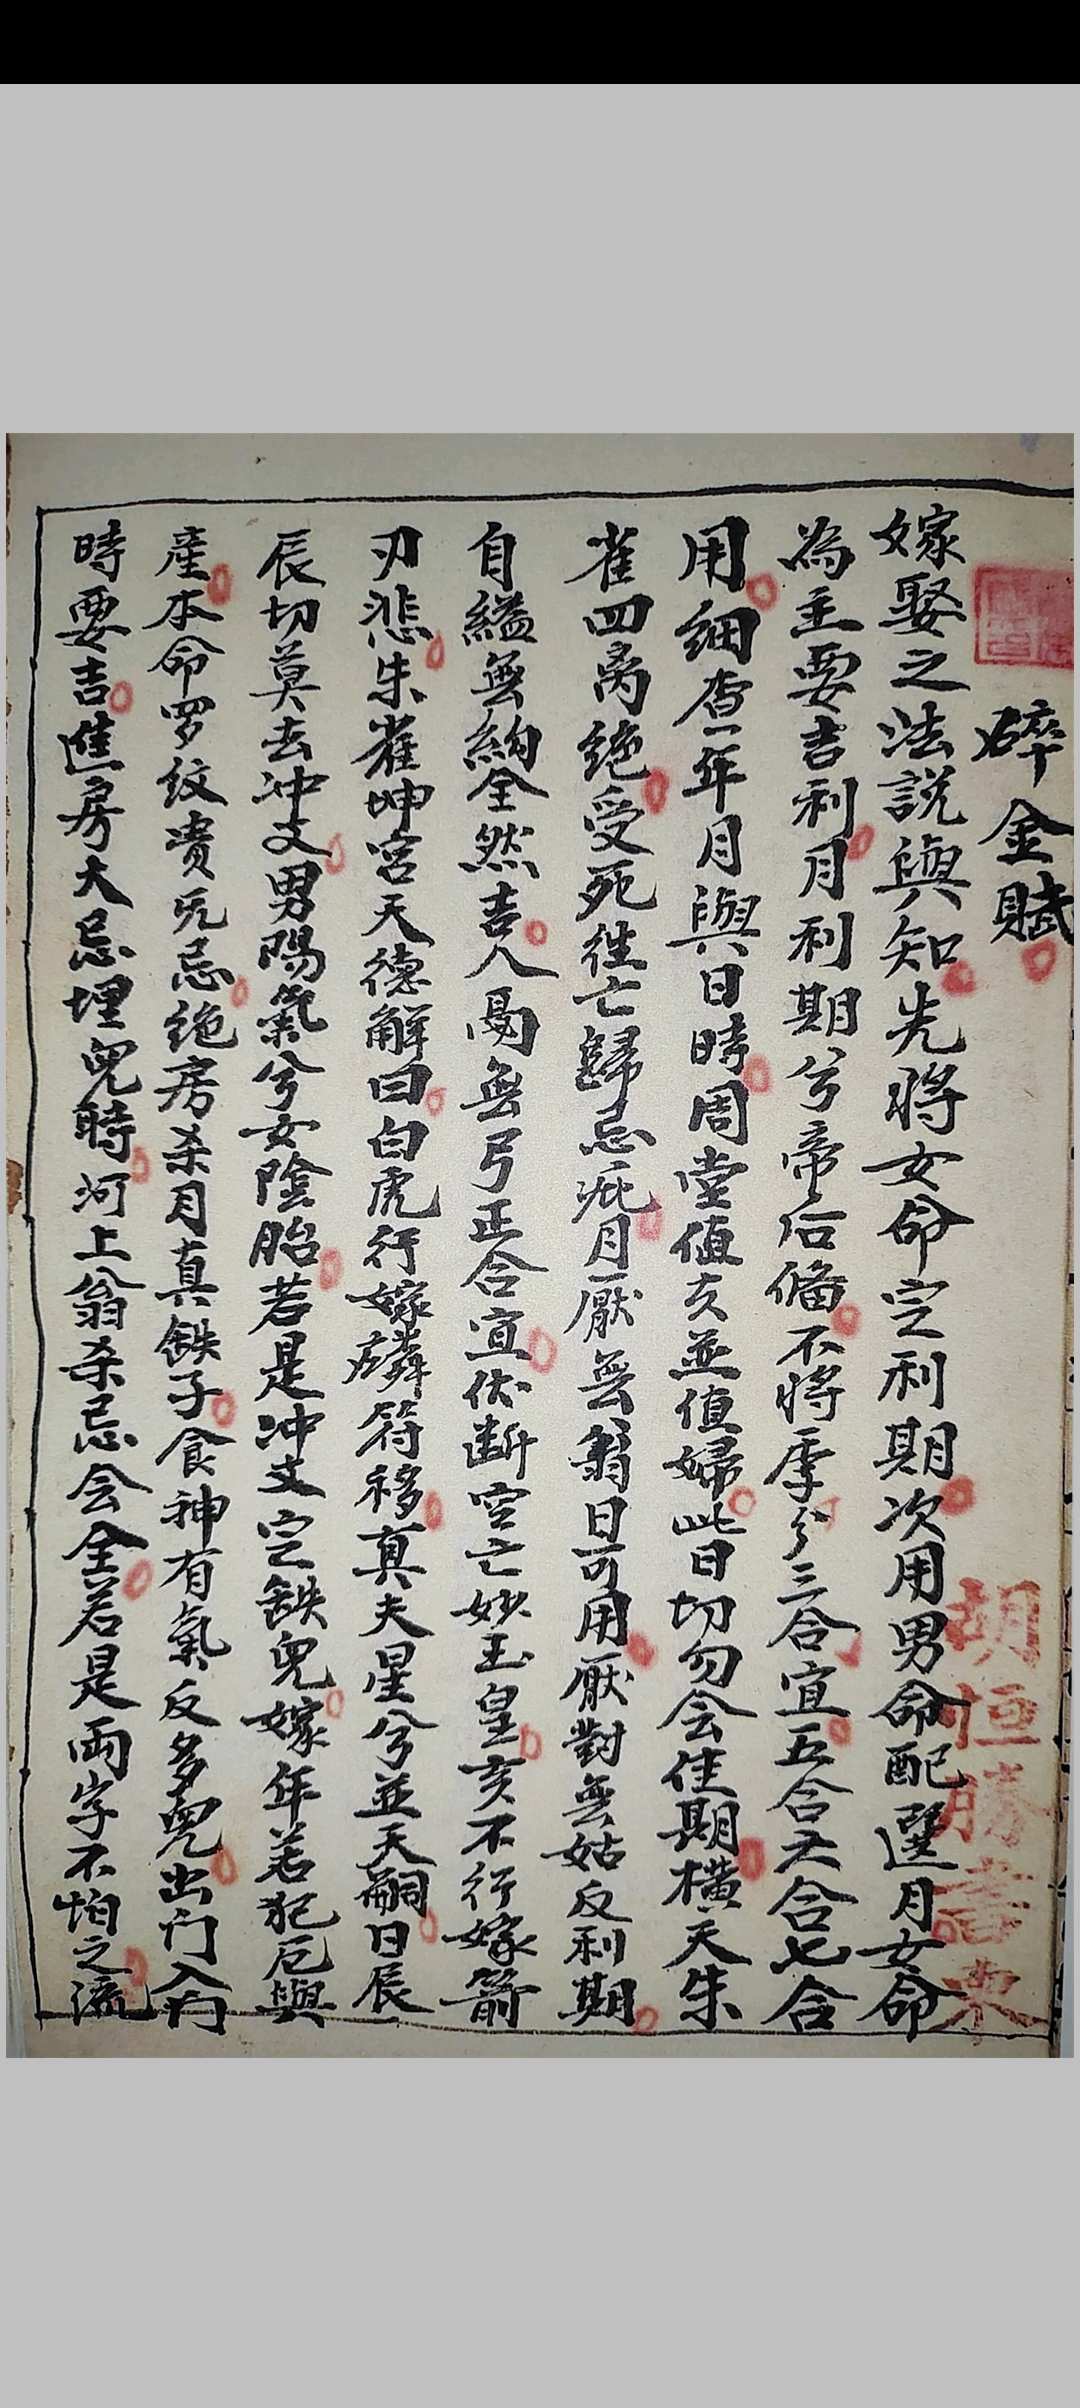 碎金賦
嫁娶之法説與知先將女命定利期次用男命配選月女命
為主要吉利月利期兮帝后俻不將季分三合宜五合六合七合
用細查年月與日時周堂值夫並值婦此日切勿会佳期橫天朱
雀四离绝受死往亡歸忌疵月厭無翁日可用厭對無姑反利期
自縊無絢全然吉人鬲無弓正合宜伏断空亡妙玉皇亥不行嫁箭
刃悲朱雀坤宮天德解曰白虎行嫁麟符移真夫星兮並天嗣日辰
辰切莫去冲支男陽氣兮女陰胎若是冲支定鉄兒嫁年若犯厄與
産本命罗纹贵元忌绝房杀月真鉄子食神有氣反多兒出门入门
時要吉進房大忌埋兒時河上翁杀忌会全若是両字不怕之流
胡恒勝書柬